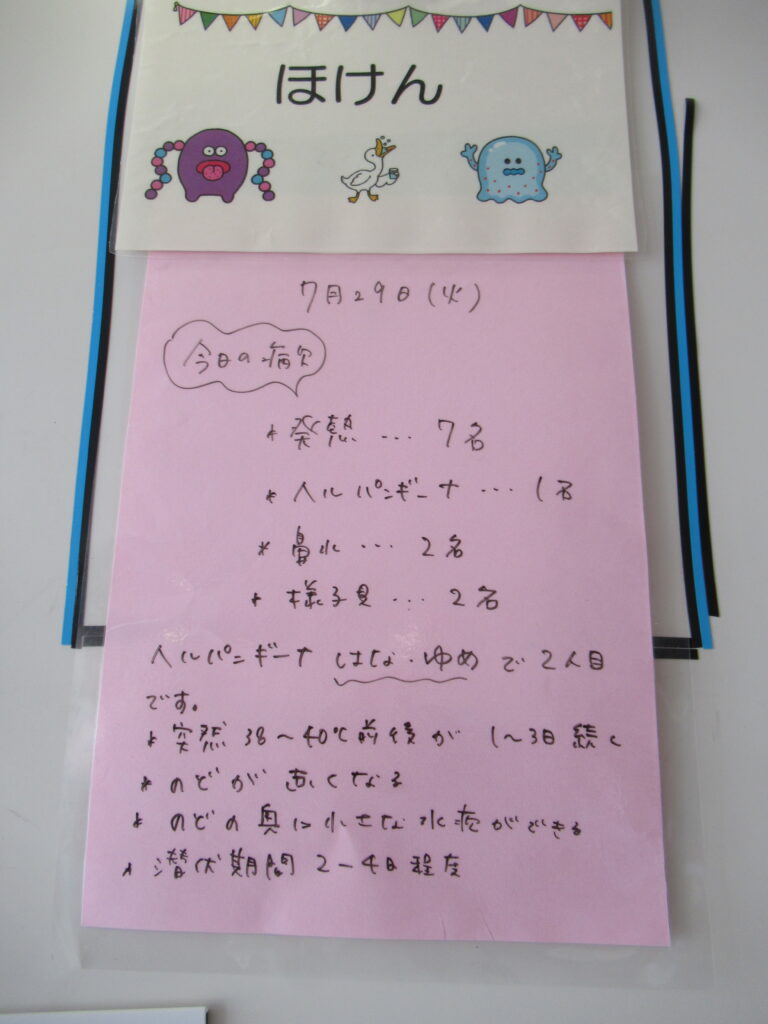 ほけん
7月29日(火)
今日の病欠
* 発熱 … 7名
* ヘルパンギーナ … 1名
* 鼻水 … 2名
* 様子見 … 2名
ヘルパンギーナ はな・ゆめ で 2人目
です。
* 突然 38~40℃前後が 1~3日 続く
* のどが 赤くなる
* のどの 奥に 小さな 水疱ができる
* 潜伏期間 2-4日 程度